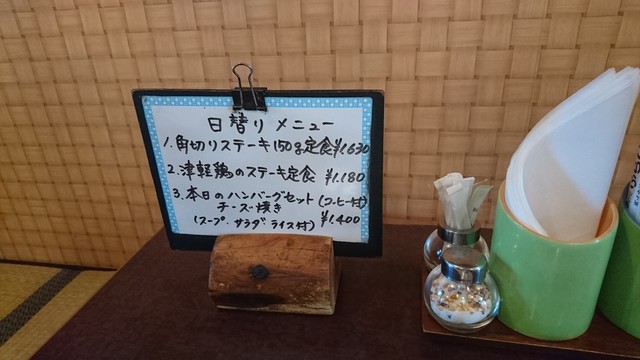 日替りメニュー
1.角切りステーキ150g定食¥1.630
2.津軽鶏のステーキ定食 ¥1.180
3.本日のハンバーグセット(コーヒー付)
チーズ焼き
(スープ.サラダ ライス付) ¥1.400